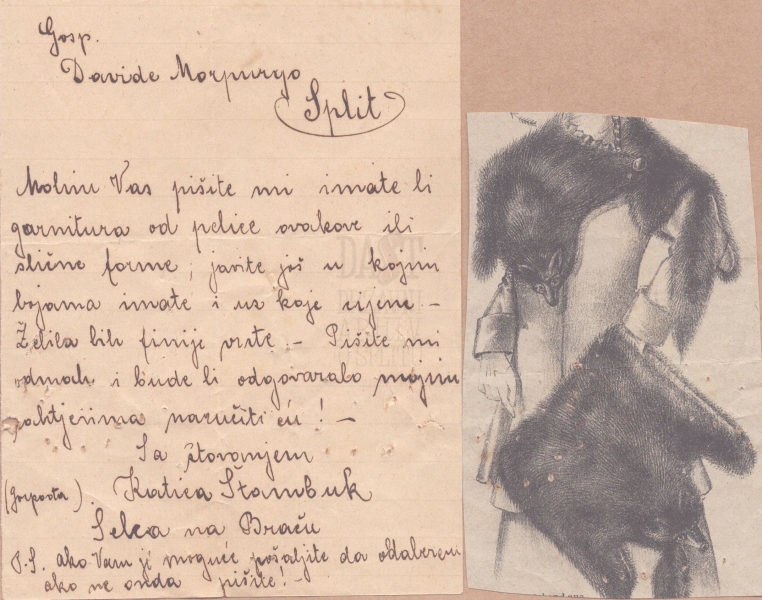 Gosp.
Davide Morpurgo
Split
Molim Vas pišite mi imate li
garnitura od pelice ovakove ili
slične forme, javite još u kojim
bojama imate i uz koje cijene –
Želila bih finije vrste – Pišite mi
odmah i bude li odgovaralo mojim
zahtjevima naručiti ću! –
Sa štovanjem
(Gospođa) Katica Štambuk
Selca na Braču
P.S. ako Vam je moguće pošaljite da odaberem
ako ne onda pišite! –